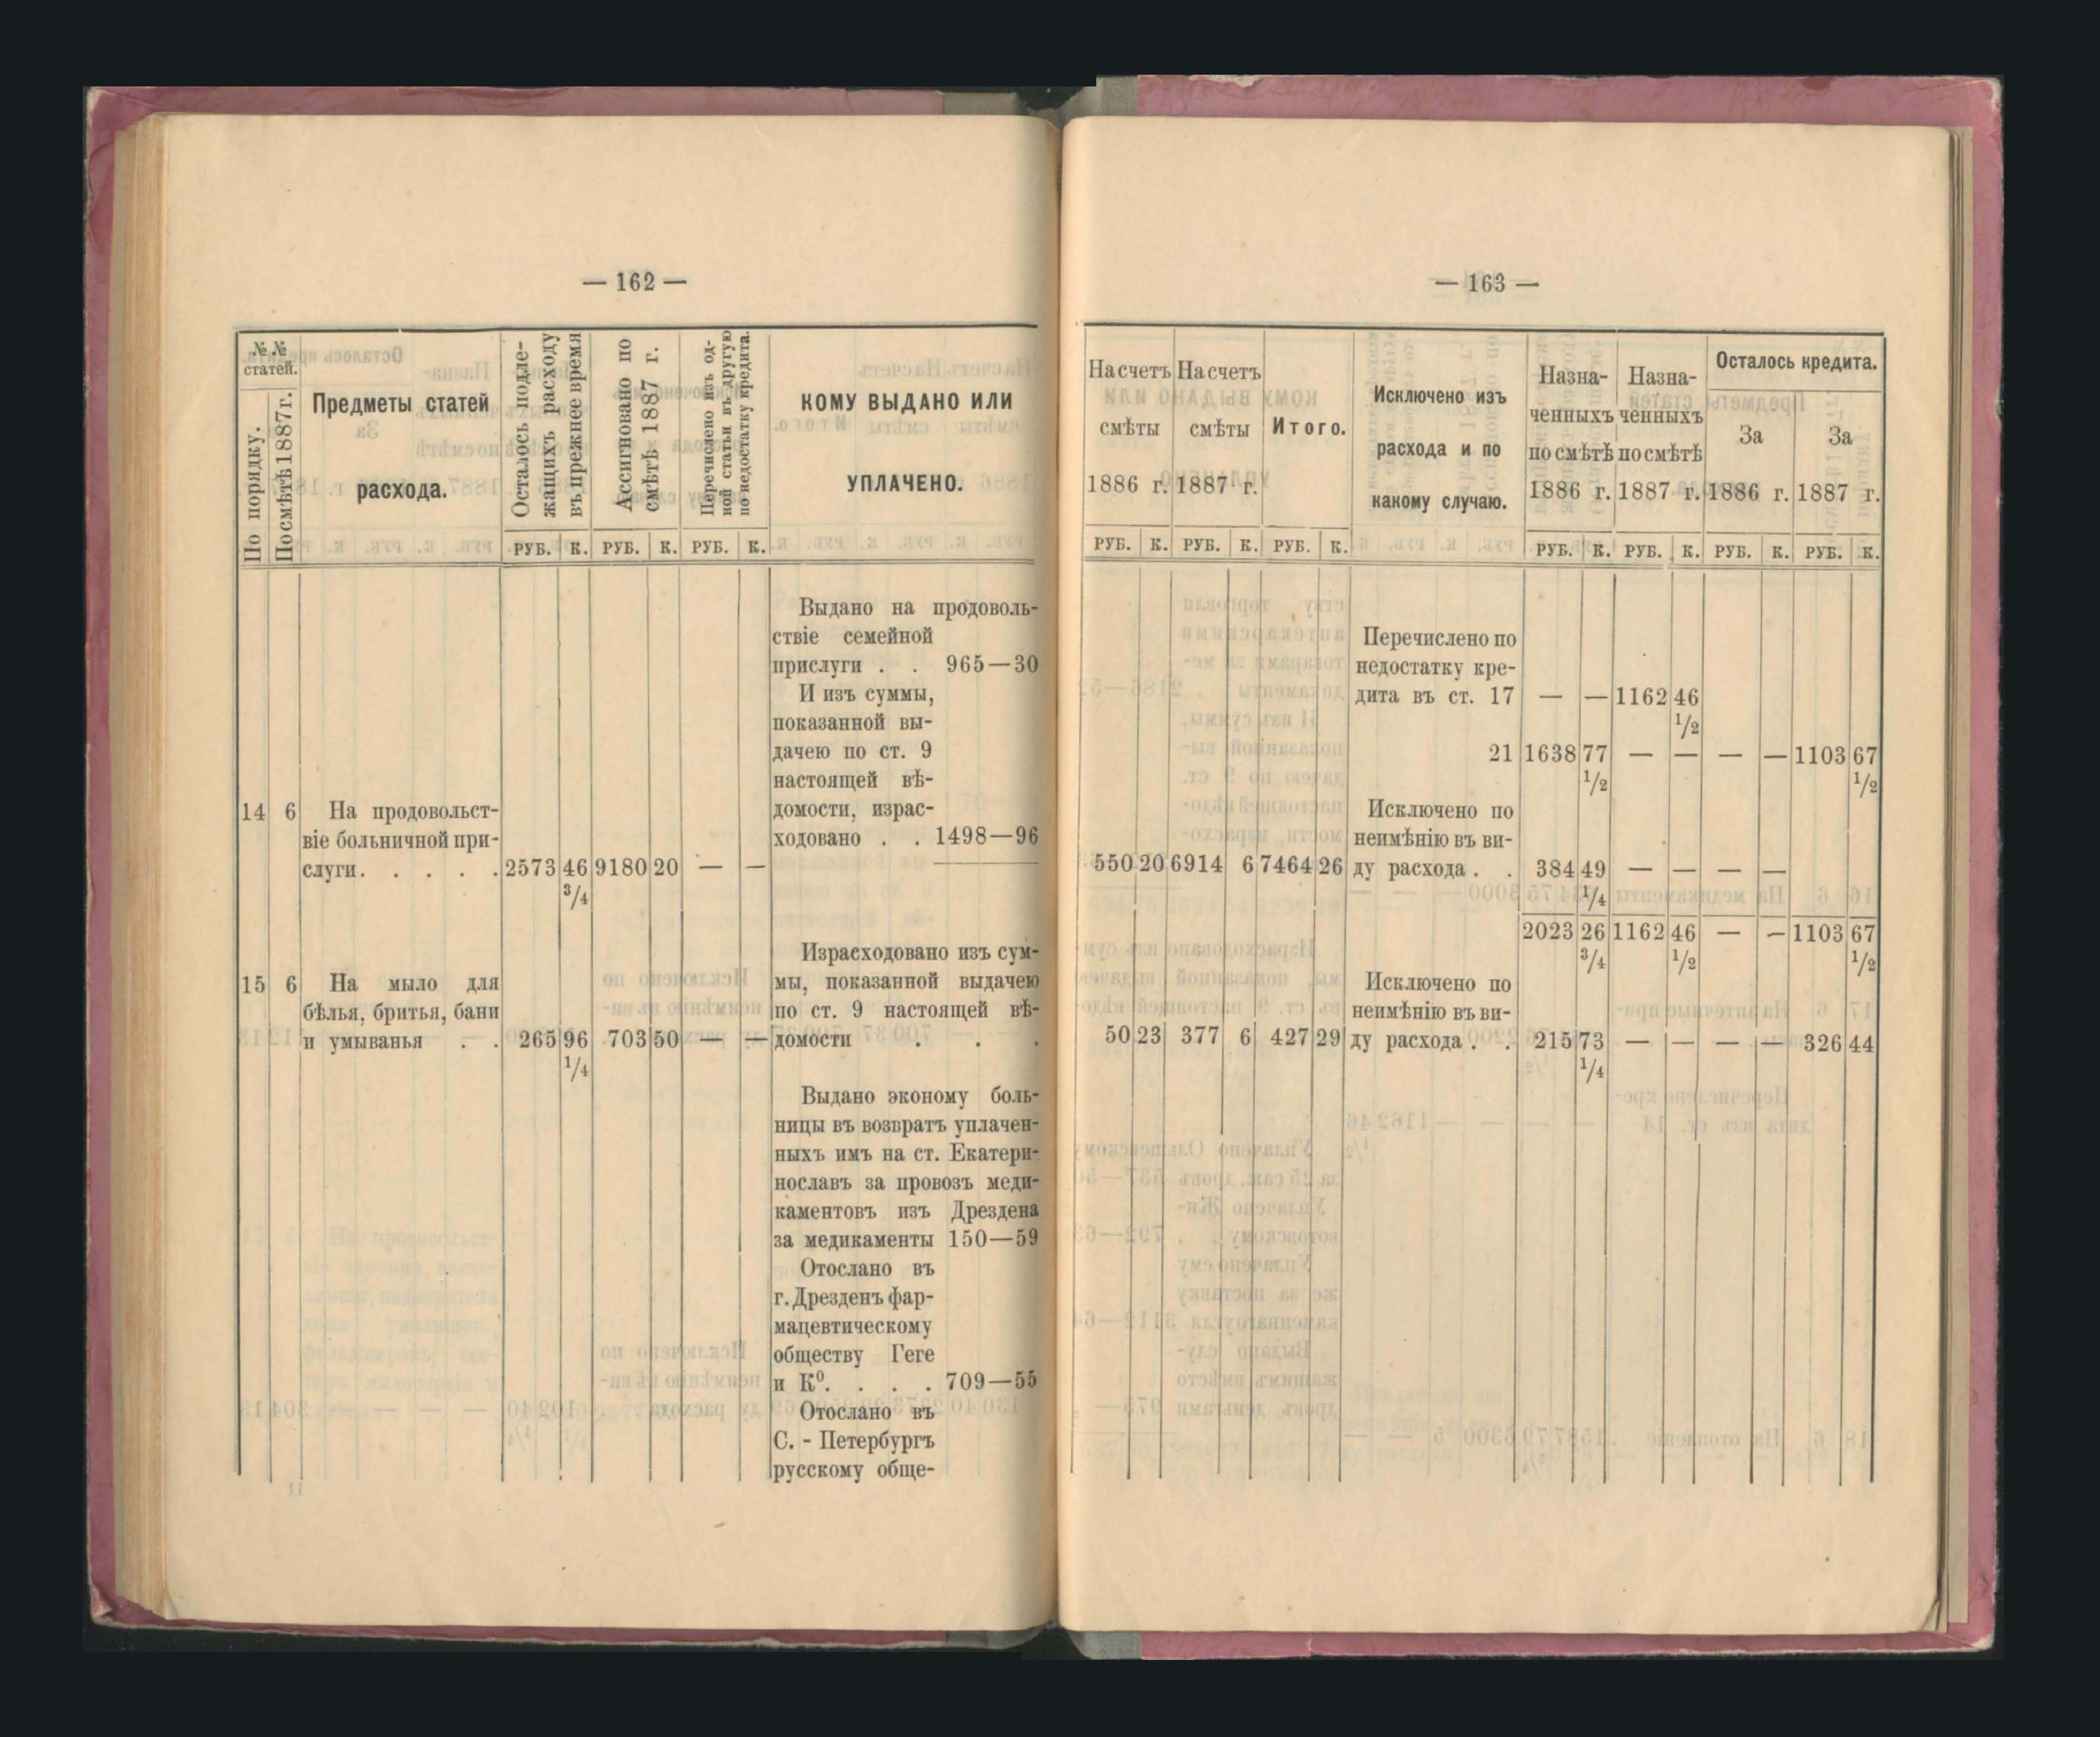 — 162 —
№№ статей.
По порядку.
По смѣтѣ 1887 г.
Предметы статей
расхода.
Осталось подле-
жащихъ расходу
въ прежнее время
Ассигновано по
смѣтѣ 1887 г.
Перечислено изъ од-
ной статьи въ другую
по недостатку кредита.
КОМУ ВЫДАНО ИЛИ
УПЛАЧЕНО.
РУБ. К. РУБ. К. РУБ. К.
Выдано на продоволь-
ствіе семейной
прислуги . . 965—30
И изъ суммы,
показанной вы-
дачею по ст. 9
настоящей вѣ-
домости, израс-
ходовано . . 1498—96
14 6 На продовольст-
віе больничной при-
слуги. . . . . 2573 46 9180 20 — —
3/4
Израсходовано изъ сум-
мы, показанной выдачею
по ст. 9 настоящей вѣ-
домости . . .
15 6 На мыло для
бѣлья, бритья, бани
и умыванья . . 265 96 703 50 — —
1/4
Выдано эконому боль-
ницы въ возвратъ уплачен-
ныхъ имъ на ст. Екатери-
нославъ за провозъ меди-
каментовъ изъ Дрездена
за медикаменты 150—59
Отослано въ
г. Дрезденъ фар-
мацевтическому
обществу Геге
и К⁰. . . . 709—55
Отослано въ
С. - Петербургъ
русскому обще-
— 163 —
На счетъ
смѣты
1886 г.
На счетъ
смѣты
1887 г.
Итого.
Исключено изъ
расхода и по
какому случаю.
Назна-
ченныхъ
по смѣтѣ
1886 г.
Назна-
ченныхъ
по смѣтѣ
1887 г.
Осталось кредита.
За
1886 г.
За
1887 г.
РУБ. К. РУБ. К. РУБ. К. РУБ. К. РУБ. К. РУБ. К. РУБ. К.
Перечислено по
недостатку кре-
дита въ ст. 17 — — 1162 46
1/2
21 1638 77 — — — — 1103 67
1/2 1/2
Исключено по
неимѣнію въ ви-
550 20 6914 6 7464 26 ду расхода . . 384 49 — — — —
1/4
2023 26 1162 46 — — 1103 67
3/4 1/2 1/2
Исключено по
неимѣнію въ ви-
50 23 377 6 427 29 ду расхода . . 215 73 — — — — 326 44
1/4